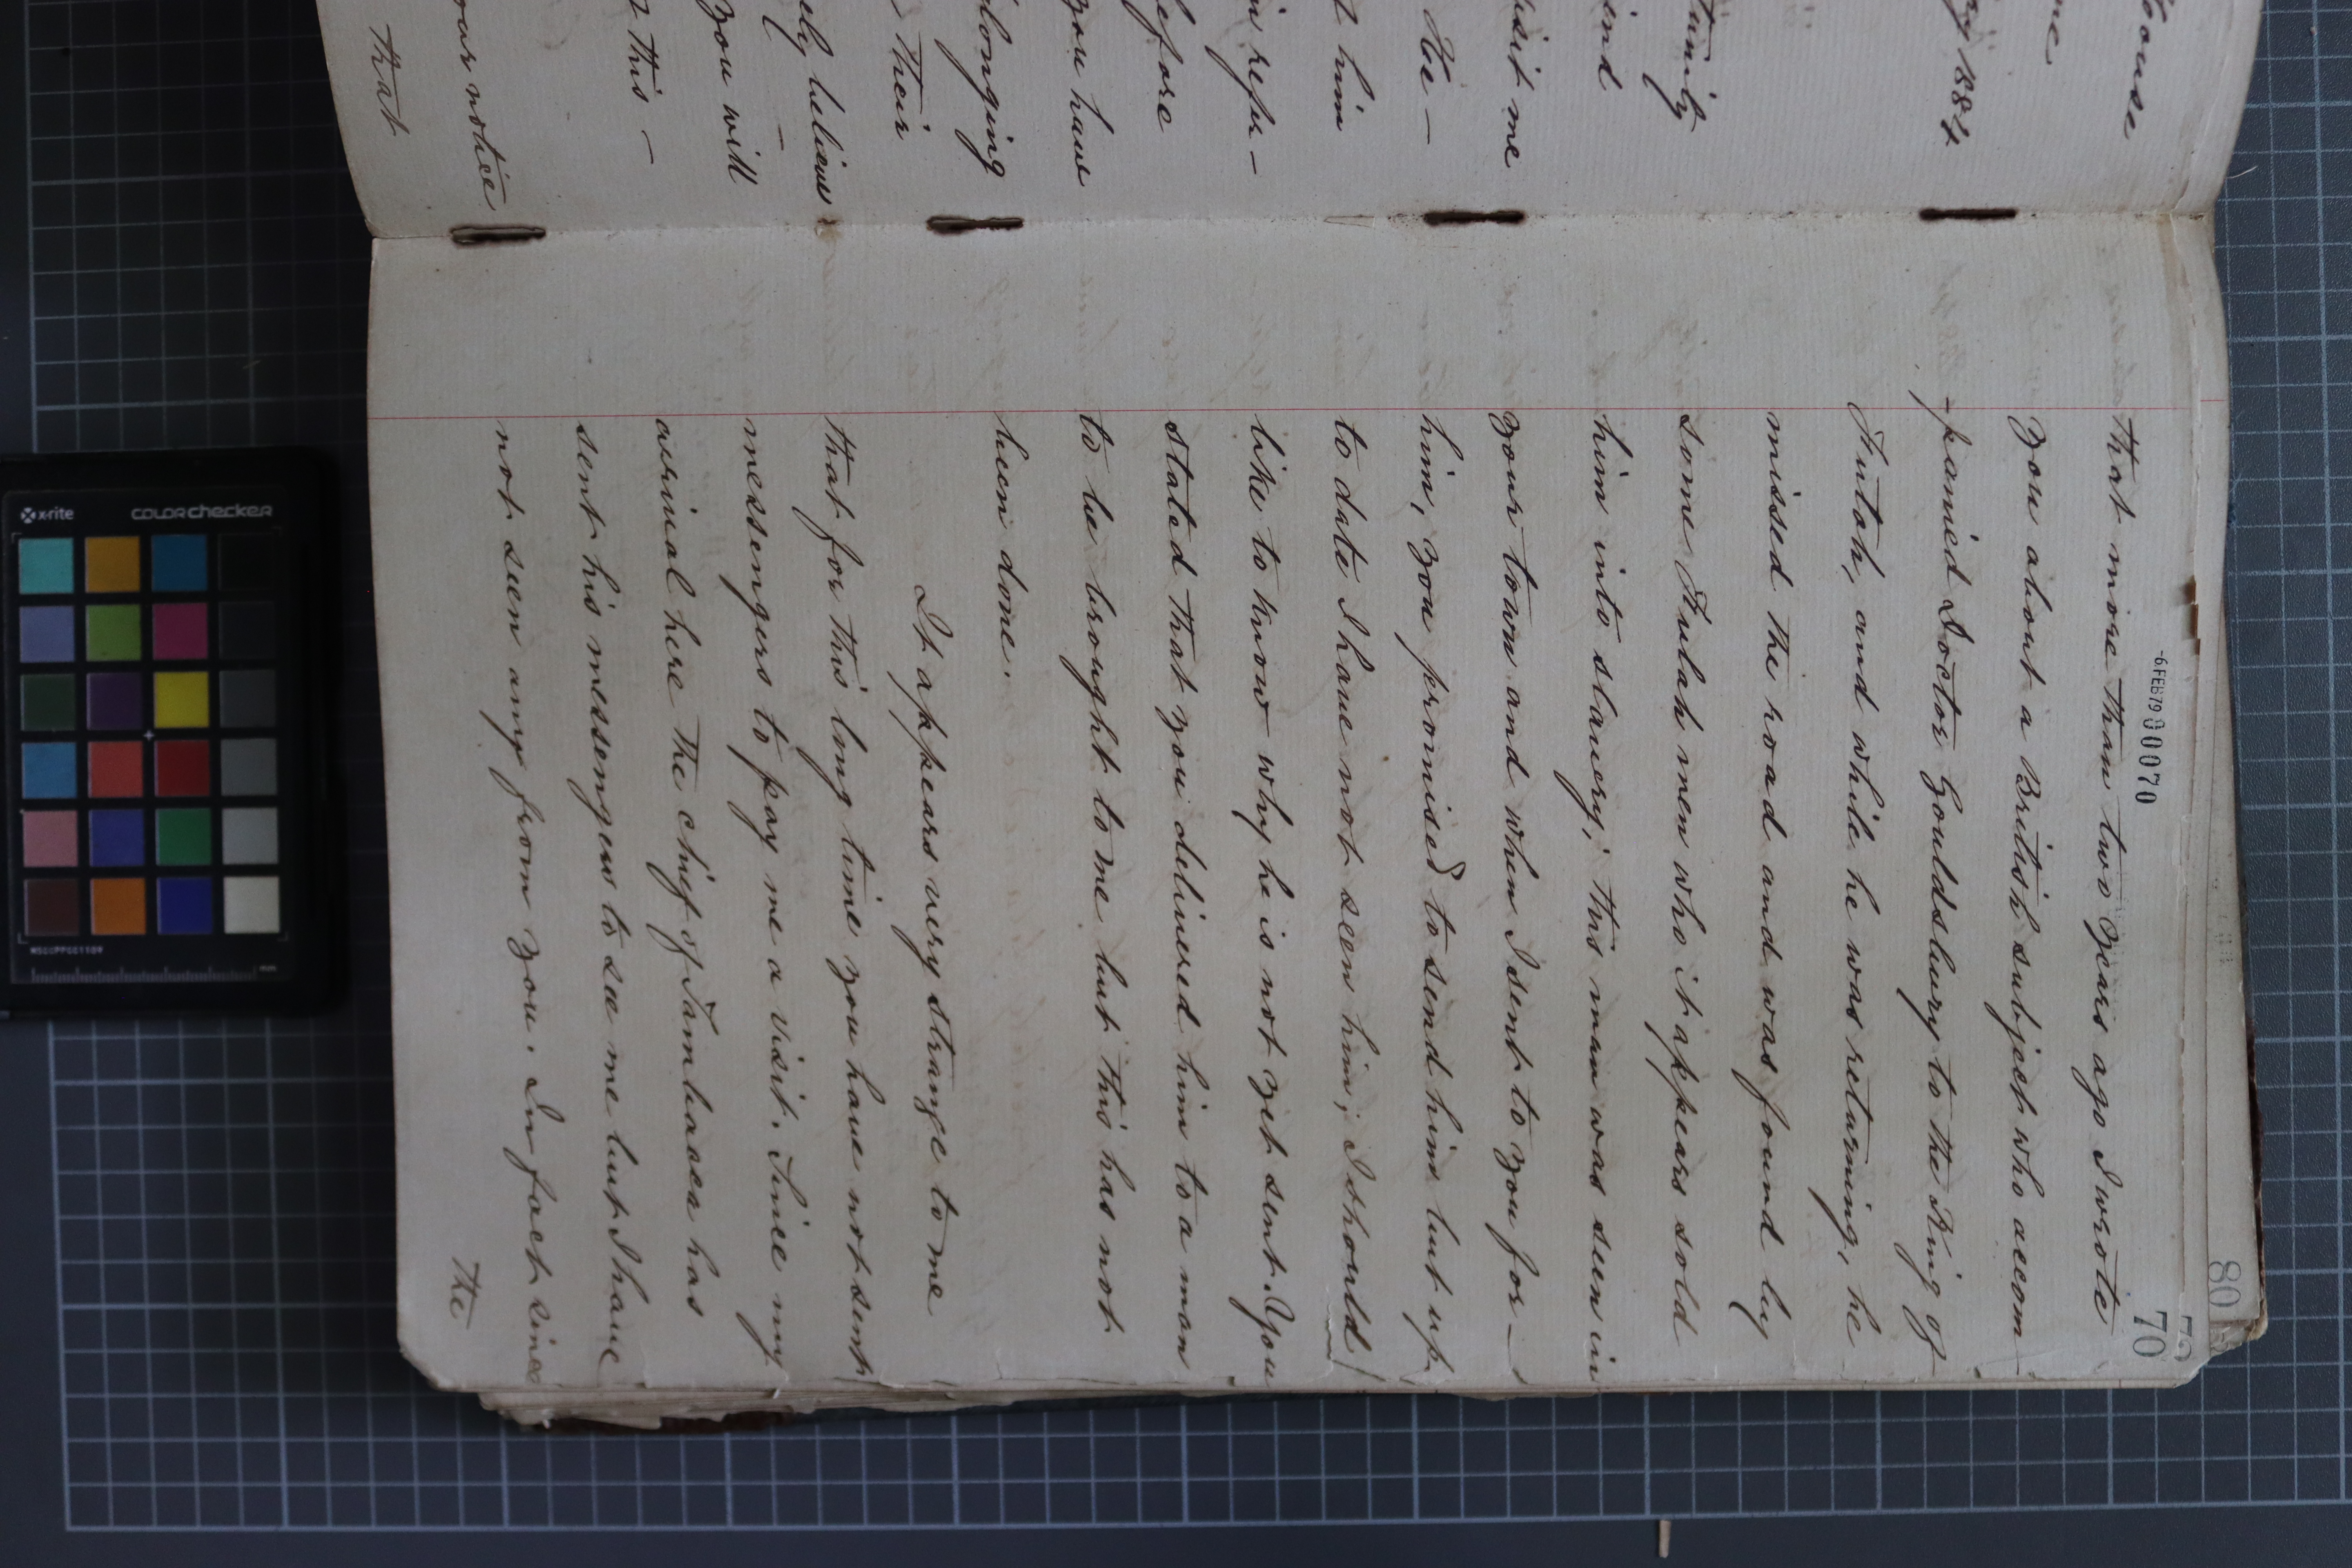 House
me
ry 1884
tunity
ind
isit me
He -
t him
in refer -
before
you have
longing
Their
ely believe
you will
this -
notice
That
-6 FEB 79 000070
80
70
That more than two years ago I wrote
you about a British subject who accom
-panied Doctor Gouldsbury to the King of
Futah, and while he was returning, he
missed the road and was found by
some Fulah men who it appears sold
him into slavery; This man was seen in
your town and when I sent to you for -
him, you promised to send him but up
to date I have not seen him; I should
like to know why he is not yet sent. You
stated that you delivered him to a man
to be brought to me but this has not
been done.
It appears very strange to me
that for this long time you have not sent
messengers to pay me a visit. Since my
arrival here the chief of Tambacca has
sent his messengers to see me but I have
not seen any from you. In fact since
The
x-rite colorchecker
MSCCPPCC1109
mm